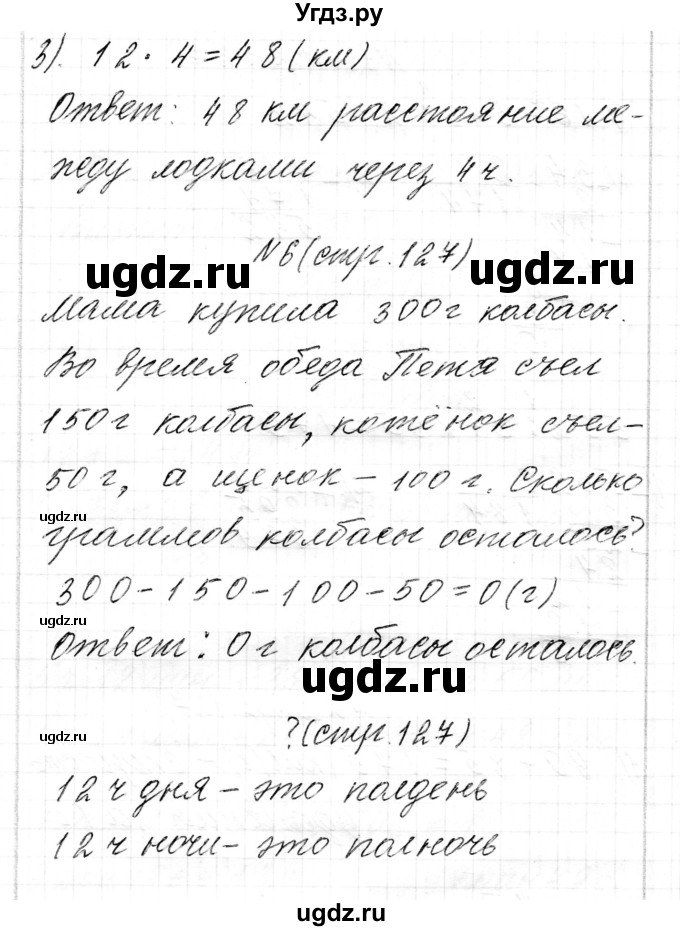 Угдз.ру
3). 12 · 4 = 48 (км)
Ответ: 48 км расстояние ме-
жеду лодками через 4 ч.
N6 (стр. 127)
ugdz.ru
ugdz.ru
Мама купила 300 г колбасы.
Во время обеда Петя съел
150 г колбасы, котёнок съел-
50 г, а щенок – 100 г. Сколько
ugdz.ru
граммов колбасы осталось?
300 – 150 – 100 – 50 = 0 (г)
ugdz.ru
Ответ: 0 г колбасы осталось.
ugdz.ru
? (стр. 127)
ugdz.ru
12 ч дня – это полдень
12 ч ночи – это полночь
ugdz.ru